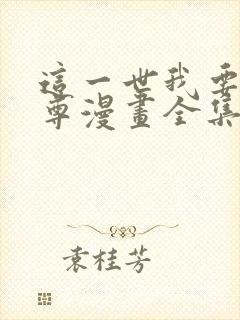 這一世我要
尊漫畫全集
袁桂芳